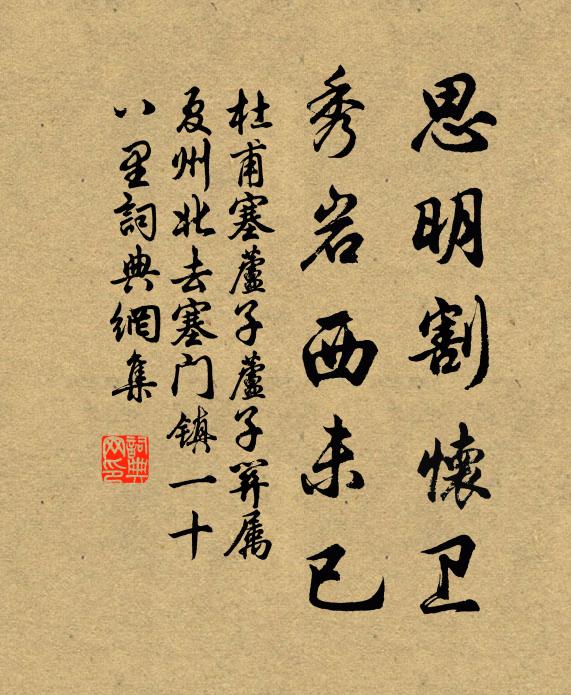 思明割懷卫
秀岩西未已
杜甫塞蘆子蘆子関属
夏州北去塞门镇一十
八里詞典網集
詞典網印